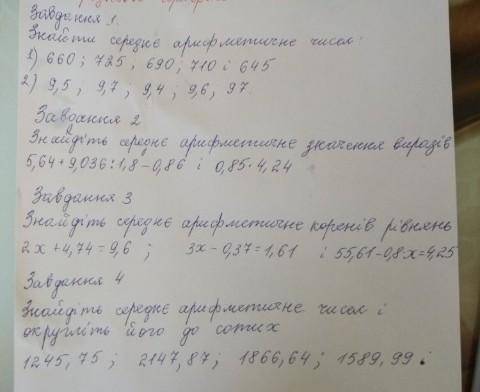 Завдання 1.
Знайти середнє арифметичне чисел:
1) 660; 725, 690; 710 і 645
2) 9,5 ; 9,7 ; 9,4 ; 9,6, 97.
Завдання 2
Знайдіть середнє арифметичне значення виразів
5,64+9,036:1,8-0,86 і 0,85·4,24
Завдання 3
Знайдіть середнє арифметичне коренів рівнянь
2x+4,74=9,6 ; 3x-0,37=1,61 і 55,61-0,8x=4,25
Завдання 4
Знайдіть середнє арифметичне чисел і
округліть його до сотих
1245,75 ; 2147,87; 1866,64; 1589,99 :